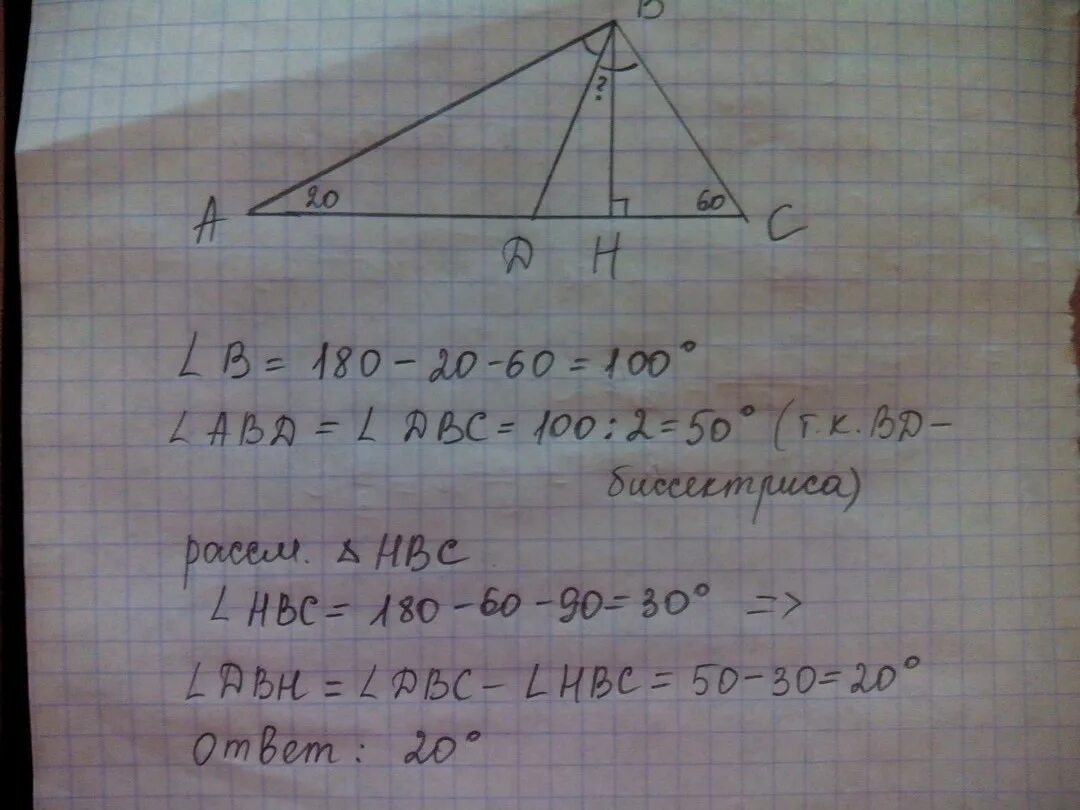 B
?
20
60
A
D
H
C
∠B = 180 - 20 - 60 = 100°
∠ABD = ∠DBC = 100 : 2 = 50° (т.к. BD -
биссектриса)
рассм. △HBC
∠HBC = 180 - 60 - 90 = 30° =>
∠DBH = ∠DBC - ∠HBC = 50 - 30 = 20°
Ответ: 20°